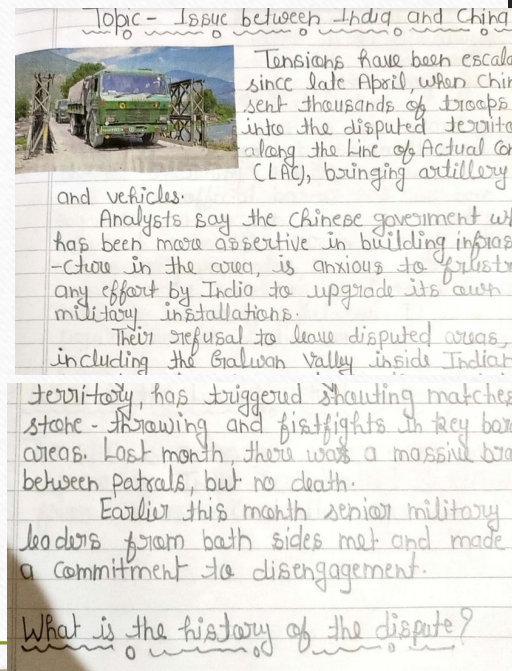 Topic - Issue between India and China
Tensions have been escala
since late April, when Chin
sent thousands of troops
into the disputed territo
along the Line of Actual Con
CLAC), bringing artillery
and vehicles.
Analysts say the Chinese goverment wh
has been more assertive in building infras
-cture in the area, is anxious to frustr
any effort by India to upgrade its own
military installations.
Their refusal to leave disputed areas,
including the Galwan Valley inside Indian
territory, has triggered shouting matches
stone - throwing and fistfights in key bor
areas. Last month, there was a massive bra
between patrols, but no death.
Earlier this month senior military
leaders from both sides met and made
a commitment to disengagement.
What is the history of the dispute?